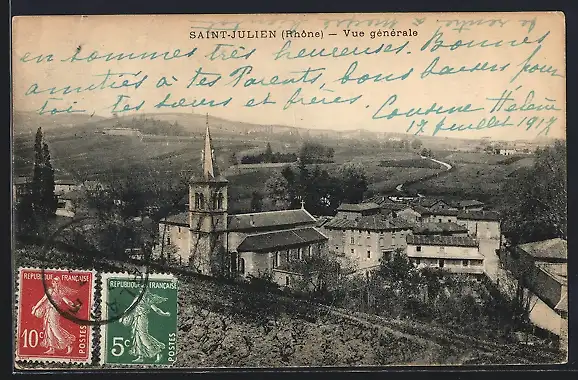 SAINT-JULIEN (Rhône) — Vue générale
en sommes très heureuses. Bonnes
amitiés à tes Parents, bons baisers pour
toi tes sœurs et frères. Cousine Hélène
17 Juillet 1917
REPUBLIQUE FRANÇAISE
10 c
POSTES
REPUBLIQUE FRANÇAISE
5 c
POSTES